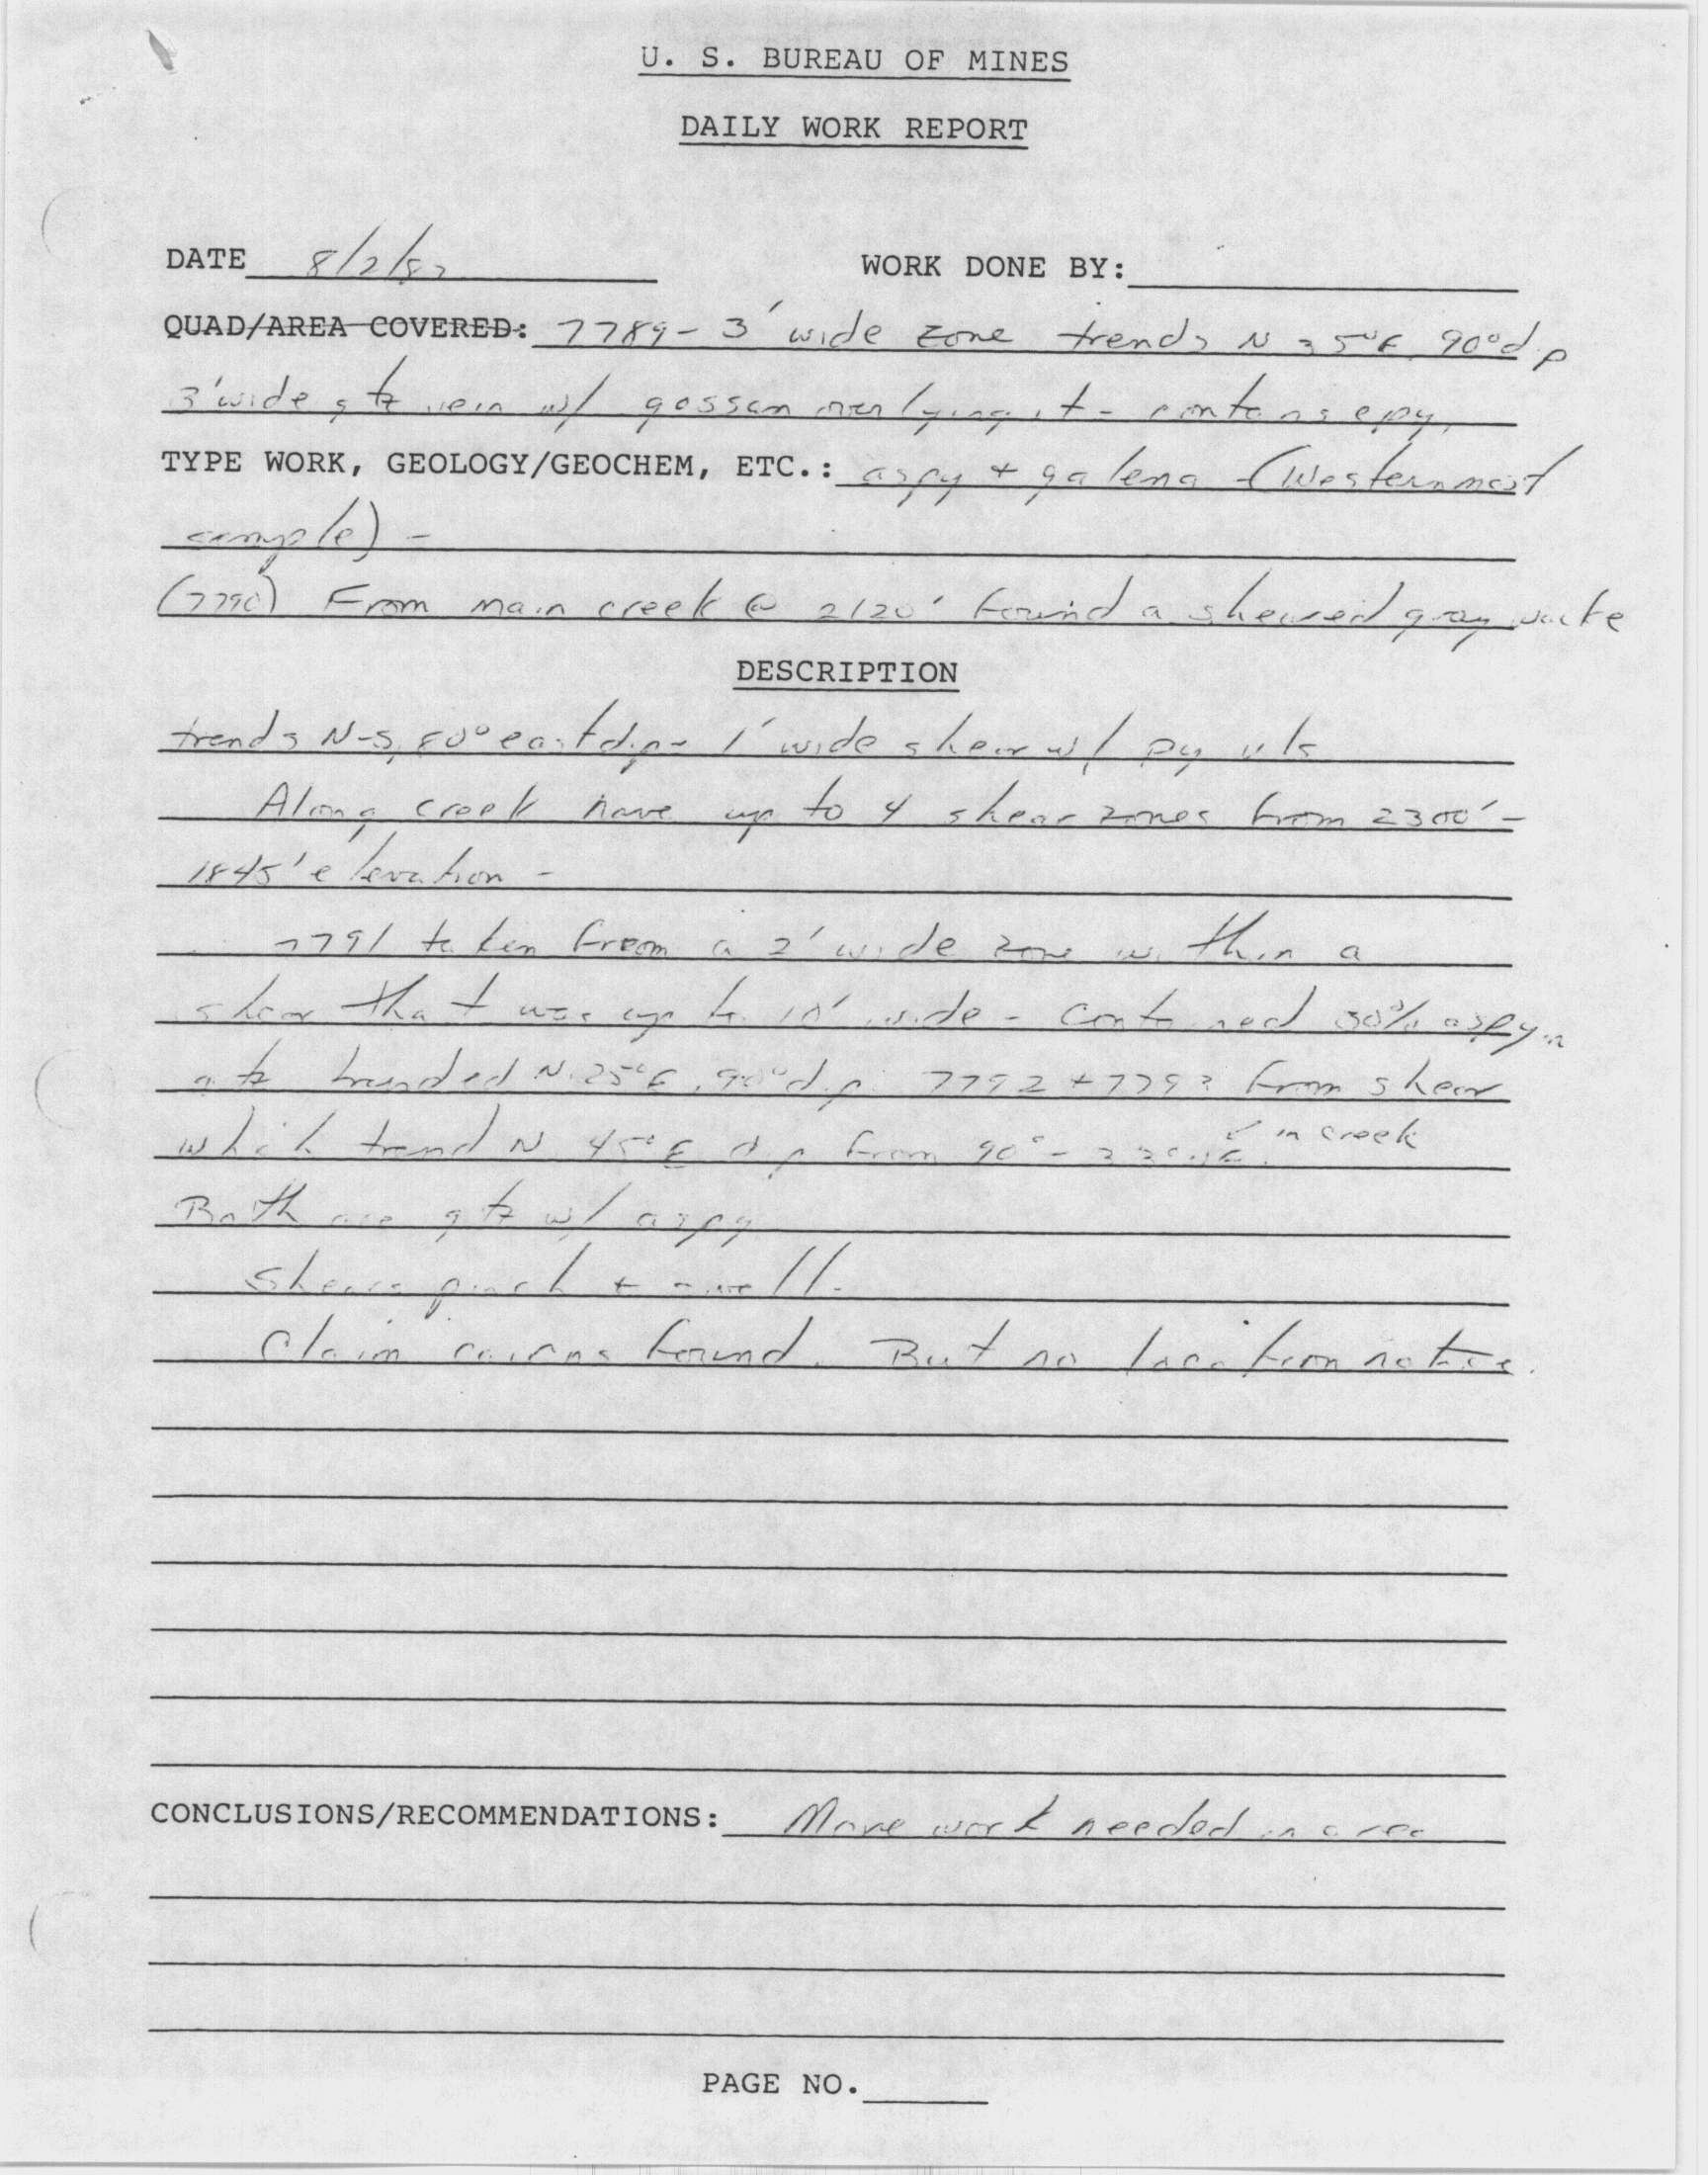 U. S. BUREAU OF MINES
DAILY WORK REPORT
DATE 8/2/82 WORK DONE BY:
QUAD/AREA COVERED: 7789 - 3' wide zone trends N 35°E, 90° dip
3' wide qtz vein w/ gossan overlying it - contains cpy,
TYPE WORK, GEOLOGY/GEOCHEM, ETC.: aspy + galena - (Westernmost
sample) -
(7790) From main creek @ 2120' found a sheared graywacke
DESCRIPTION
trends N-S, 80° east dip - 1' wide shear w/ py
Along creek have up to 4 shear zones from 2300' -
1845' elevation -
7791 taken from a 2' wide zone within a
shear that was up to 10' wide - contained 30% aspy in
qtz trended N 25°E, 90° dip. 7792 + 7793 from shear
which trend N 45°E dip from 90° - in creek
Both are qtz w/ aspy
Shears pinch + swell.
Claim cairns found. But no location notice.
CONCLUSIONS/RECOMMENDATIONS: More work needed in area
PAGE NO.